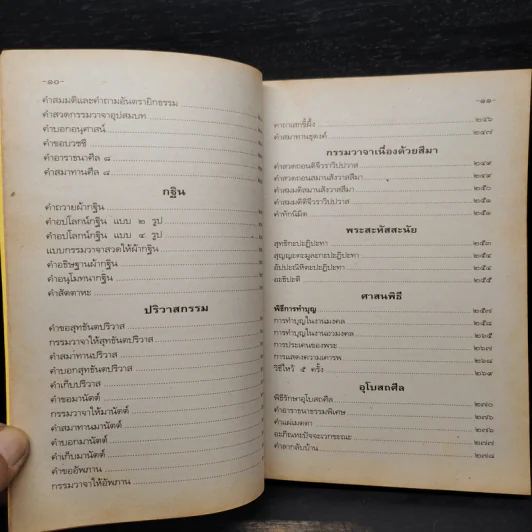 -๑๐-
คำสมมติและคำถามอันตรายิกธรรม
คำสวดกรรมวาจาอุปสมบท
คำบอกอนุศาสน์
คำขอบวชชี
คำอาราธนาศีล ๘
คำสมาทานศีล ๘
กฐิน
คำถวายผ้ากฐิน
คำอปโลกน์กฐิน แบบ ๒ รูป
คำอปโลกน์กฐิน แบบ ๔ รูป
แบบกรรมวาจาสวดให้ผ้ากฐิน
คำอธิษฐานผ้ากฐิน
คำอนุโมทนากฐิน
คำสัตตาหะ
ปริวาสกรรม
คำขอสุทธันตปริวาส
กรรมวาจาให้สุทธันตปริวาส
คำสมาทานปริวาส
คำบอกสุทธันตปริวาส
คำเก็บปริวาส
คำขอมานัตต์
กรรมวาจาให้มานัตต์
คำสมาทานมานัตต์
คำบอกมานัตต์
คำเก็บมานัตต์
คำขออัพภาน
กรรมวาจาให้อัพภาน
-๑๑-
๒๔๖
คำสมาทานธุดงค์ ๒๔๗
กรรมวาจาเนื่องด้วยสีมา
คำสวดถอนติจีวราวิปปวาส ๒๔๙
คำสวดถอนสมานสังวาสสีมา ๒๔๙
คำสมมติสมานสังวาสสีมา ๒๕๐
คำสมมติติจีวราวิปปวาส ๒๕๑
คำทักนิมิต ๒๕๑
พระสะหัสสะนัย
สุทธิกะปะฏิปะทา ๒๕๓
สุญญะตะมูละกะปะฏิปะทา ๒๕๔
อัปปะณิหิตะปะฏิปะทา ๒๕๔
อะธิปะติ ๒๕๕
ศาสนพิธี
พิธีการทำบุญ ๒๕๗
การทำบุญในงานมงคล ๒๕๘
การทำบุญในงานอวมงคล ๒๖๕
การประเคนของพระ ๒๖๗
การแสดงความเคารพ ๒๖๘
วิธีไหว้ ๕ ครั้ง ๒๖๙
อุโบสถศีล
พิธีรักษาอุโบสถศีล ๒๗๐
คำอาราธนาธรรมพิเศษ ๒๗๖
คำแผ่เมตตา ๒๗๖
อะภิณหะปัจจะเวกขะณะ ๒๗๗
คำลากลับบ้าน ๒๗๘